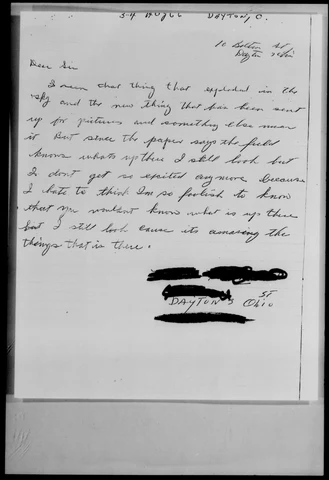 3-4 Aug 66 DAYTON, O.
10 Bolton St
Dayton Ohio
Dear Sir
I seen that thing that exploded in the
sky and the new thing that has been sent
up for pictures and something else near
it But since the paper says the field
knows whats up there I still look but
I don't get so excited anymore because
I hate to think I'm so foolish to know
that you wouldn't know what is up there
but I still look cause its amazing the
things that is there.
ST
DAYTON Ohio